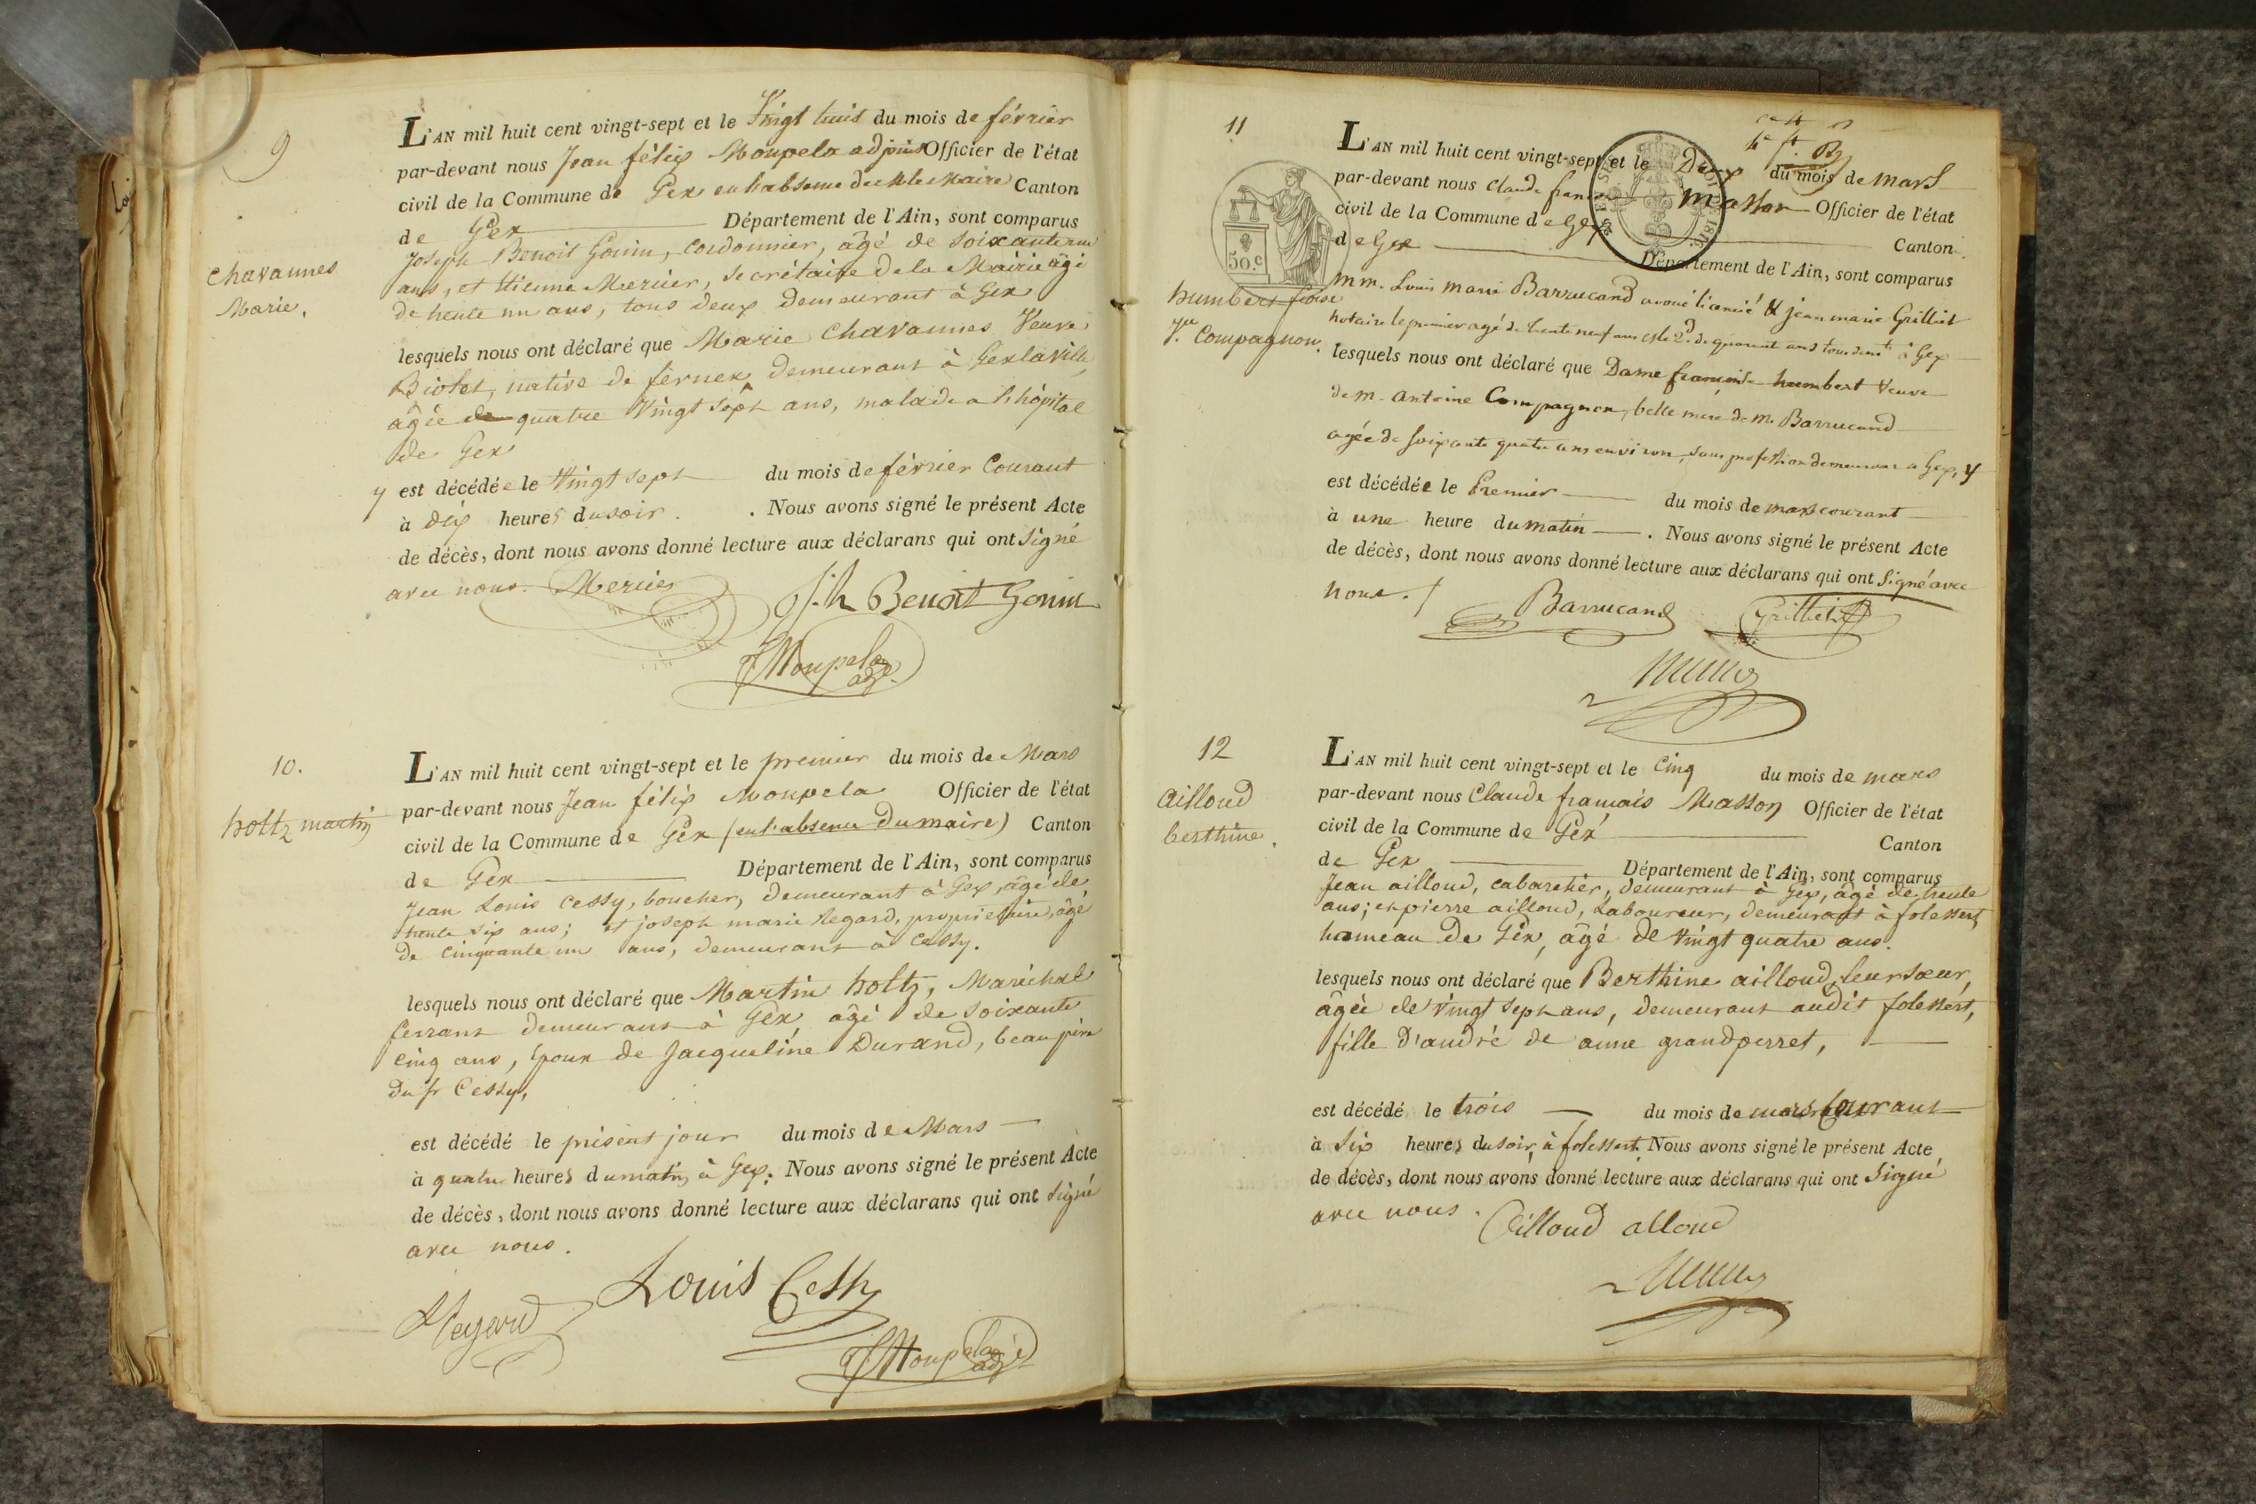 9
L'AN mil huit cent vingt-sept et le Vingt huit du mois de février
par-devant nous Jean félix Moupela adjoint Officier de l'état
civil de la Commune de Gex en l'absence de M. le Maire Canton
de Gex Département de l'Ain, sont comparus
Joseph Benoit Gonin, cordonnier, âgé de soixante un
ans, et Etienne Mercier, secrétaire de la Mairie âgé
de trente un ans, tous deux demeurant à Gex
chavannes
Marie.
lesquels nous ont déclaré que Marie Chavannes Veuve
Biolet, native de fernex, demeurant à Gex la ville,
âgée de quatre Vingt Sept ans, malade a l'hôpital
de Gex
y est décédée le Vingt sept du mois de février Courant
à dix heures du soir. Nous avons signé le présent Acte
de décès, dont nous avons donné lecture aux déclarans qui ont Signé
avec nous. Mercier Jh Benoit Gonin
Moupela adj.
10.
holtz martin
L'AN mil huit cent vingt-sept et le premier du mois de Mars
par-devant nous Jean félix Moupela Officier de l'état
civil de la Commune de Gex (en l'absence du maire) Canton
de Gex Département de l'Ain, sont comparus
Jean Louis Cessy, boucher, demeurant à Gex, âgé de
trente six ans; et joseph marie Regard, propriétaire, âgé
de cinquante un ans, demeurant à Cessy.
lesquels nous ont déclaré que Martin holtz, Maréchal
ferrant demeurant à Gex âgé de soixante
cinq ans, Epoux de Jacqueline Durand, beau père
du sr Cessy,
est décédé le présent jour du mois de Mars
à quatre heures du matin à Gex. Nous avons signé le présent Acte
de décès, dont nous avons donné lecture aux déclarans qui ont signé
avec nous.
Louis Cessy
Regard
Moupela adj
11
L'AN mil huit cent vingt-sept et le Deux du mois de mars
par-devant nous Claude françois Masson Officier de l'état
civil de la Commune de Gex Canton
de Gex Département de l'Ain, sont comparus
50.c
mm. Louis Marie Barrucand avoué licencié & jean marie Grilliet
notaire le premier agé de trente neuf ans et le 2d. de quarante ans tous demt à Gex
humbert fçoise
Ve. Compagnon.
lesquels nous ont déclaré que Dame françoise humbert Veuve
de m. antoine Compagnon, belle mere de m. Barrucand
agée de soixante quatre ans environ, sans profession demeurant a Gex, y
est décédée le Premier du mois de mars courant
à une heure du matin. Nous avons signé le présent Acte
de décès, dont nous avons donné lecture aux déclarans qui ont Signé avec
nous.
Barrucand Grilliet
12
ailloud
berthine.
L'AN mil huit cent vingt-sept et le Cinq du mois de mars
par-devant nous Claude françois Masson Officier de l'état
civil de la Commune de Gex Canton
de Gex Département de l'Ain, sont comparus
Jean ailloud, cabaretier, demeurant à Gex, âgé de trente
ans; et pierre ailloud, Laboureur, demeurant à folessert,
hameau de Gex, âgé de Vingt quatre ans.
lesquels nous ont déclaré que Berthine ailloud, leur sœur,
âgée de Vingt Sept ans, demeurant audit folessert,
fille d'andré de anne grandperret,
est décédé le trois du mois de mars Courant
à Six heures du soir, à folessert. Nous avons signé le présent Acte
de décès, dont nous avons donné lecture aux déclarans qui ont Signé
avec nous.
ailloud alloud